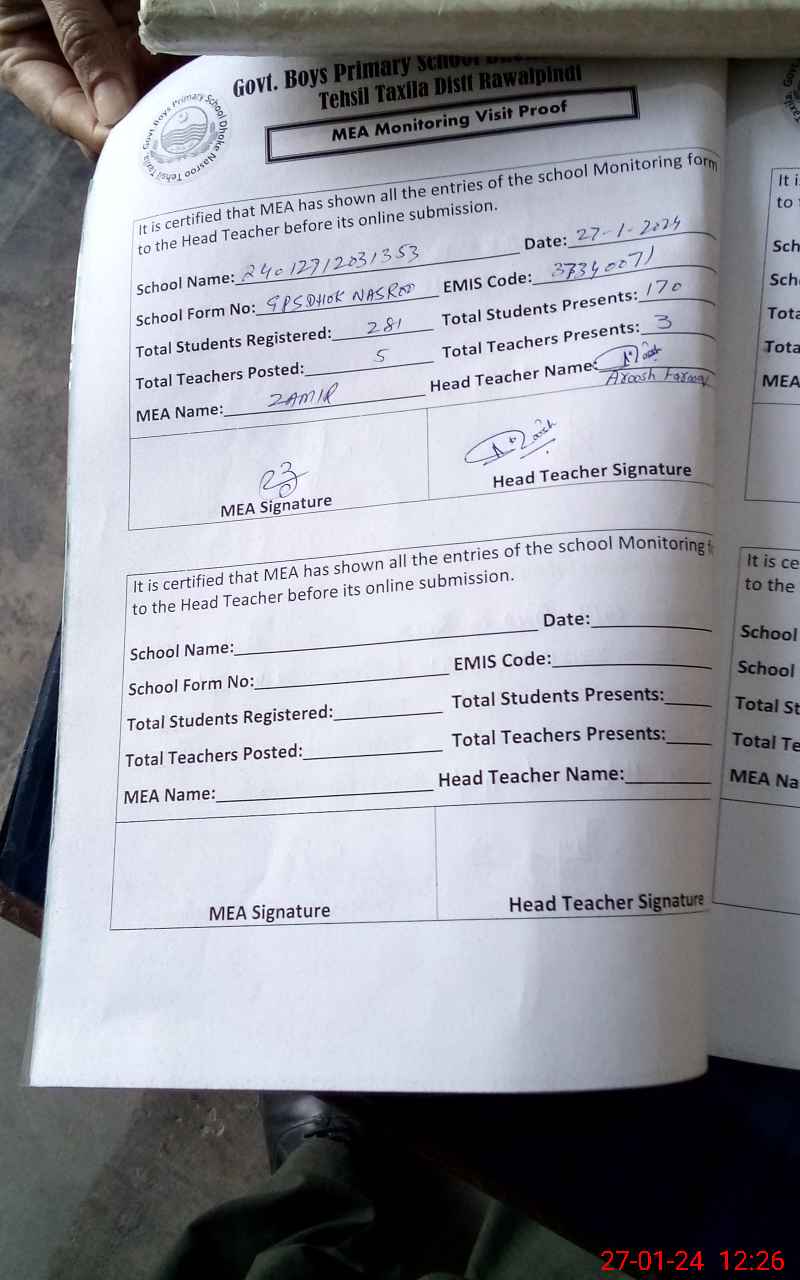 Govt. Boys Primary School
Tehsil Taxila Distt Rawalpindi
MEA Monitoring Visit Proof
Govt Boys Primary School Dhoke Nasroo Tehsil Taxila
It is certified that MEA has shown all the entries of the school Monitoring form
to the Head Teacher before its online submission.
School Name: 24012712031353 Date: 27-1-2024
School Form No: GPS DHOK NASROO EMIS Code: 37340071
Total Students Registered: 281 Total Students Presents: 170
Total Teachers Posted: 5 Total Teachers Presents: 3
MEA Name: ZAMIR Head Teacher Name:
Aroosh Farooq
MEA Signature Head Teacher Signature
It is certified that MEA has shown all the entries of the school Monitoring
to the Head Teacher before its online submission.
School Name: Date:
School Form No: EMIS Code:
Total Students Registered: Total Students Presents:
Total Teachers Posted: Total Teachers Presents:
MEA Name: Head Teacher Name:
MEA Signature Head Teacher Signature
It is
to
Sch
Sch
Tota
Tota
MEA
It is ce
to the
School
School
Total St
Total Te
MEA Na
27-01-24 12:26